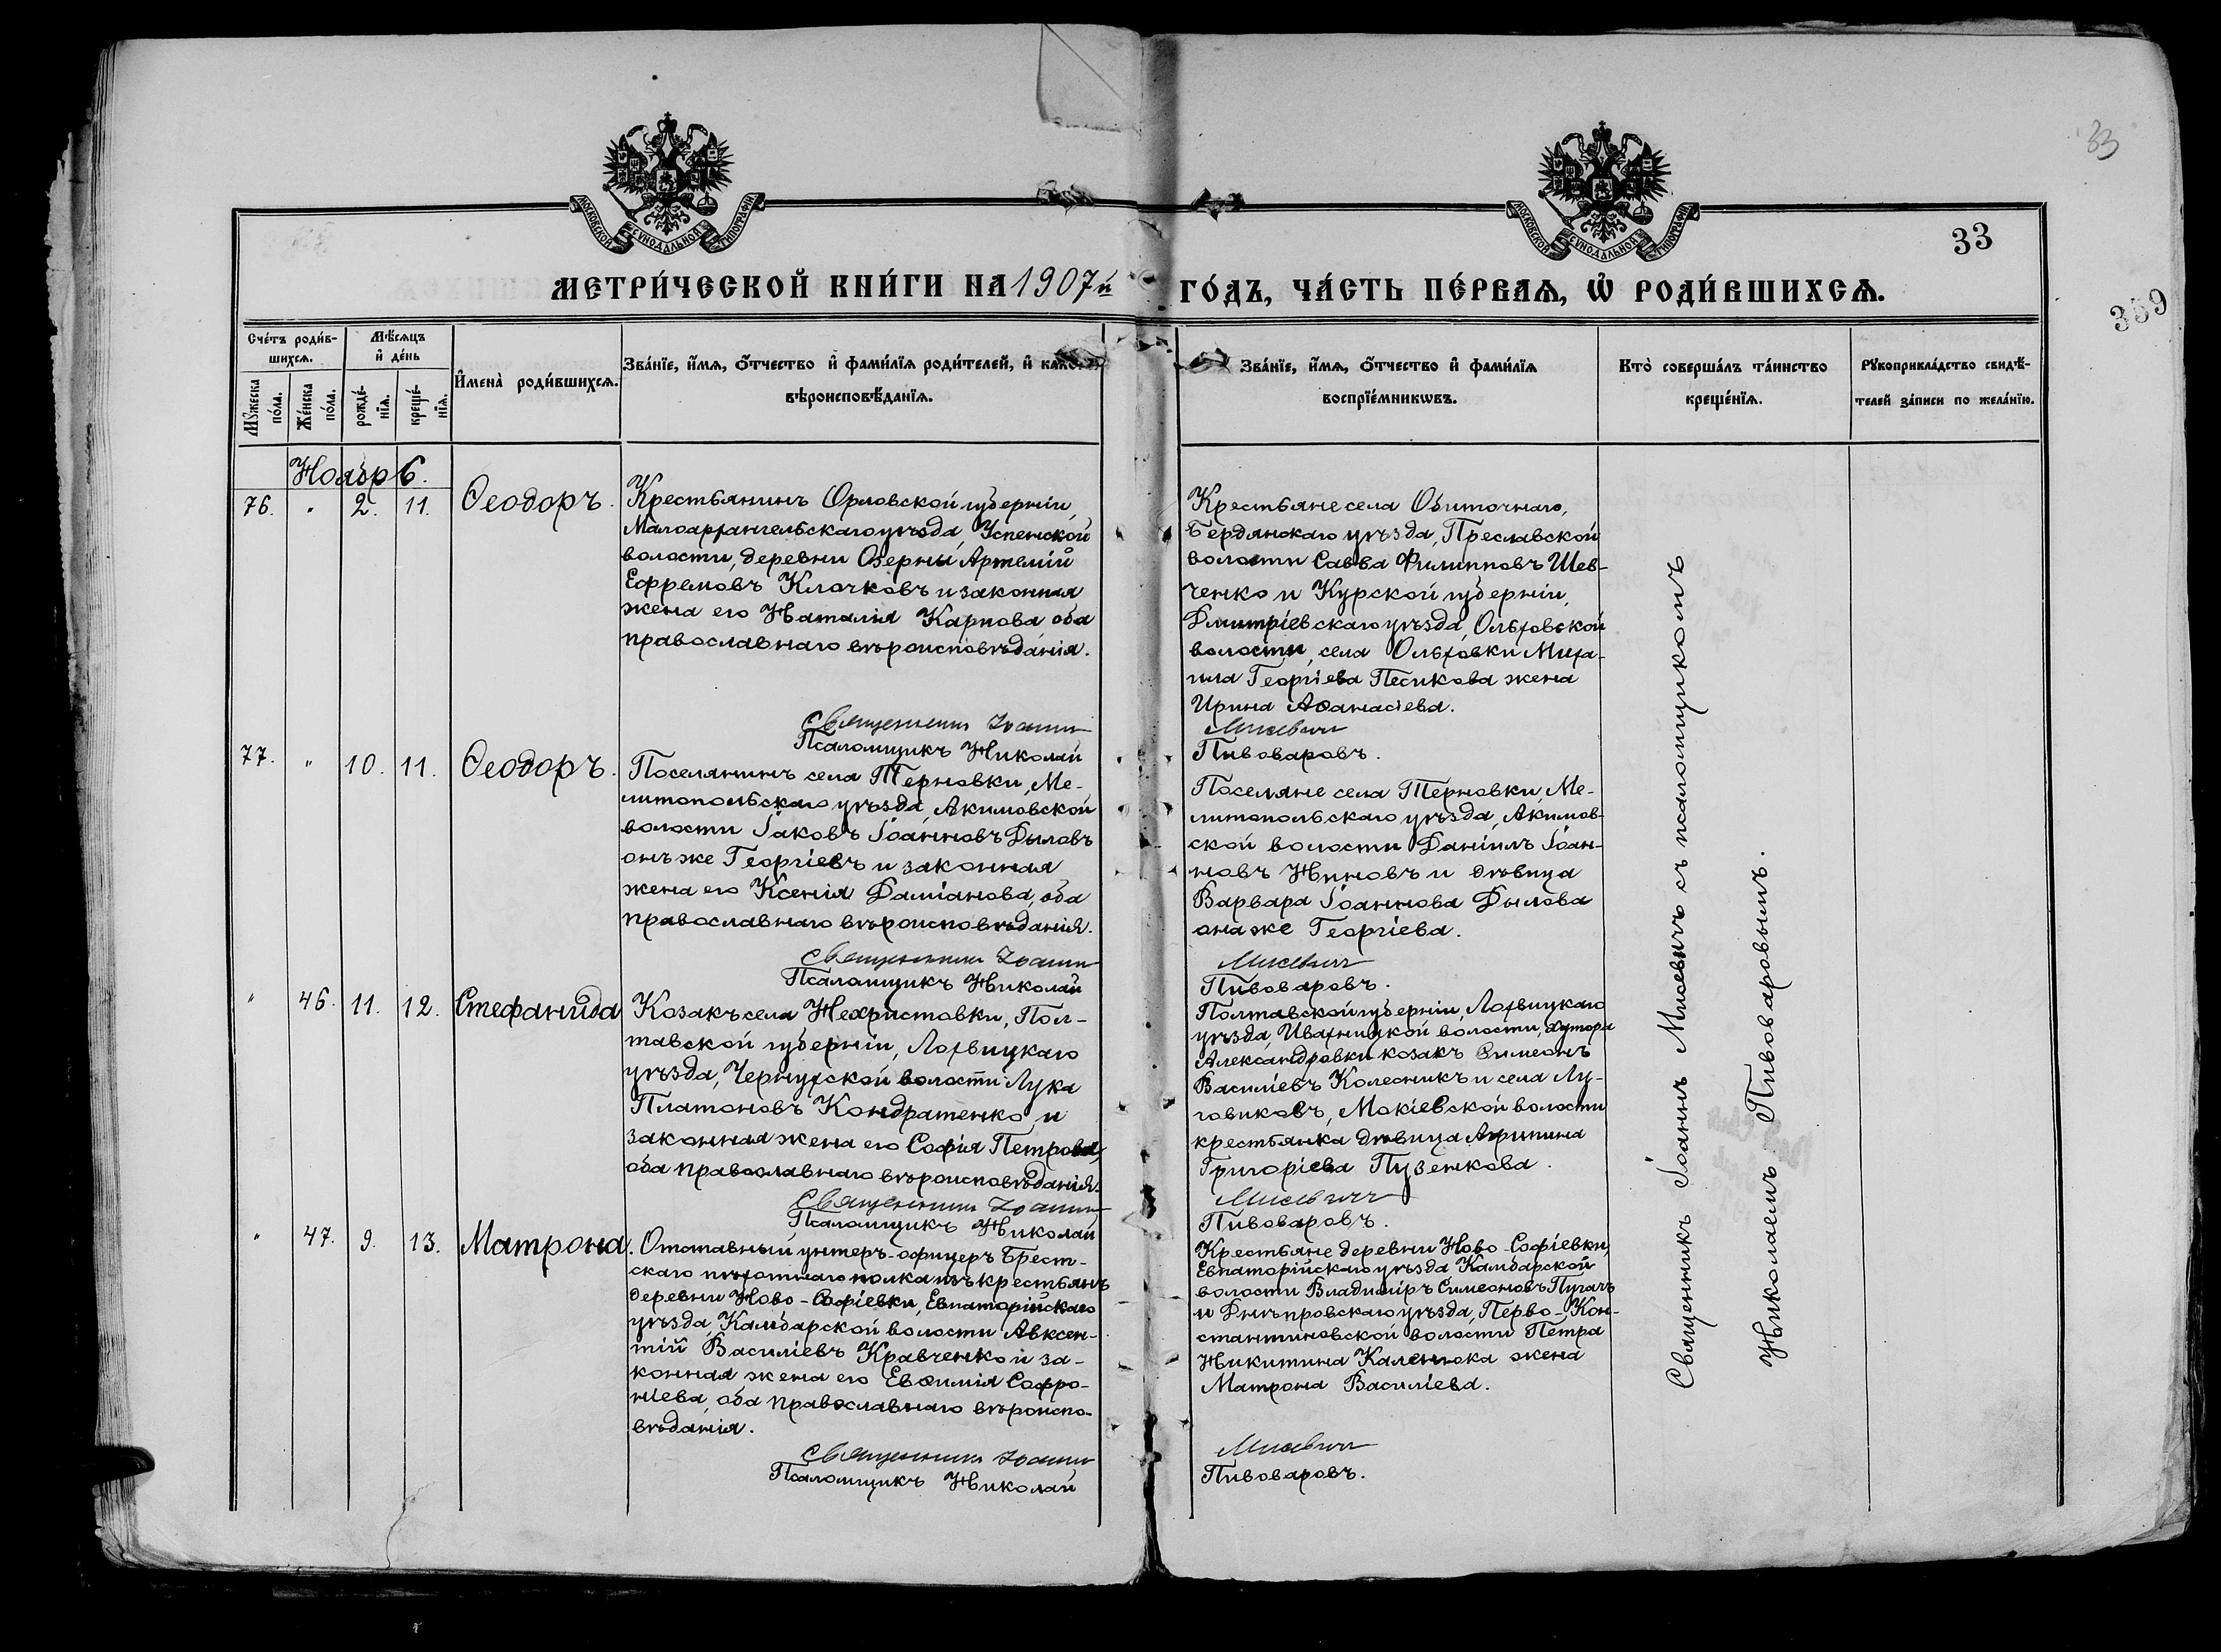 33
МОСКОВСКОЙ СУНОДАЛЬНОЙ ТИПОГРАФІИ
МОСКОВСКОЙ СУНОДАЛЬНОЙ ТИПОГРАФІИ
33
359
МЕТРИ́ЧЕСКОЙ КНИ́ГИ НА 1907й ГО́ДЪ, ЧА́СТЬ ПЕ́РВАѦ, Ѡ РОДИ́ВШИХСѦ.
Сче́тъ роди́в-
шихсѧ.
Мѣ́сѧцъ
и де́нь
Мꙋжеска
по́ла.
Же́нска
по́ла.
рожде́-
нїѧ.
креще́-
нїѧ.
И҆мена̀ роди́вшихсѧ.
Зва́нїе, и҆́мѧ, ѻ҆́тчество и҆ фами́лїѧ роди́телей, и҆
вѣроисповѣ́данїѧ.
Зва́нїе, и҆́мѧ, ѻ҆́тчество и҆ фами́лїѧ
воспрїе́мникѡвъ.
Кто̀ соверша́лъ та́инство
креще́нїѧ.
Рꙋкоприкла́дство свидѣ́-
телей за́писи по жела́нїю.
Ноябрь.
76. " 2. 11. Ѳеодоръ.
Крестьянинъ Орловской губерніи,
Малоархангельскаго уѣзда, Успенской
волости, деревни Озерны Артемій
Ефремовъ Клочковъ и законная
жена его Наталія Карпова оба
православнаго вѣроисповѣданія.
Священникъ Іоаннъ
Псаломщикъ Николай
Крестьяне села Обиточнаго,
Бердянскаго уѣзда, Преславской
волости Савва Филипповъ Шев-
ченко и Курской губерніи,
Дмитріевскаго уѣзда, Ольховской
волости, села Ольховки Миха-
ила Георгіева Песикова жена
Ирина Аѳанасіева.
Мисевичъ
Пивоваровъ.
77. " 10. 11. Ѳеодоръ.
Поселянинъ села Терновки, Ме-
литопольскаго уѣзда, Акимовской
волости Іаковъ Іоанновъ Дыловъ
онъ же Георгіевъ и законная
жена его Ксенія Даміанова, оба
православнаго вѣроисповѣданія.
Священникъ Іоаннъ
Псаломщикъ Николай
Поселяне села Терновки, Ме-
литопольскаго уѣзда, Акимов-
ской волости Даніилъ Іоан-
новъ Ниновъ и дѣвица
Варвара Іоаннова Дылова
она же Георгіева.
Мисевичъ
Пивоваровъ.
" 46. 11. 12. Стефанида
Козакъ села Нехристовки, Пол-
тавской губерніи, Лохвицкаго
уѣзда, Чернухской волости Лука
Платоновъ Кондратенко, и
законная жена его Софія Петрова,
оба православнаго вѣроисповѣданія.
Священникъ Іоаннъ
Псаломщикъ Николай
Полтавской губерніи, Лохвицкаго
уѣзда, Ивахницкой волости, хутора
Александровки козакъ Симеонъ
Василіевъ Колесникъ и села Лу-
говиковъ, Мокіевской волости
крестьянка дѣвица Агрипина
Григоріева Пузенкова.
Мисевичъ
Пивоваровъ.
" 47. 9. 13. Матрона.
Отставный унтеръ-офицеръ Брест-
скаго пѣхотнаго полка изъ крестьянъ
деревни Ново-Софіевки, Евпаторійскаго
уѣзда, Камбарской волости Авксен-
тій Василіевъ Кравченко и за-
конная жена его Евѳимія Софро-
ніева, оба православнаго вѣроиспо-
вѣданія.
Священникъ Іоаннъ
Псаломщикъ Николай
Крестьяне деревни Ново-Софіевки,
Евпаторійскаго уѣзда Камбарской
волости Владиміръ Симеоновъ Пугачъ
и Днѣпровскаго уѣзда, Перво-Кон-
стантиновской волости Петра
Никитина Каленюка жена
Матрона Василіева.
Мисевичъ
Пивоваровъ.
Священникъ Іоаннъ Мисевичъ съ псаломщикомъ
Николаемъ Пивоваровымъ.